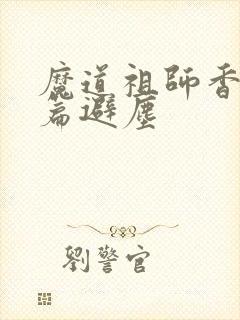 魔道祖師香
篇避塵
劉警官